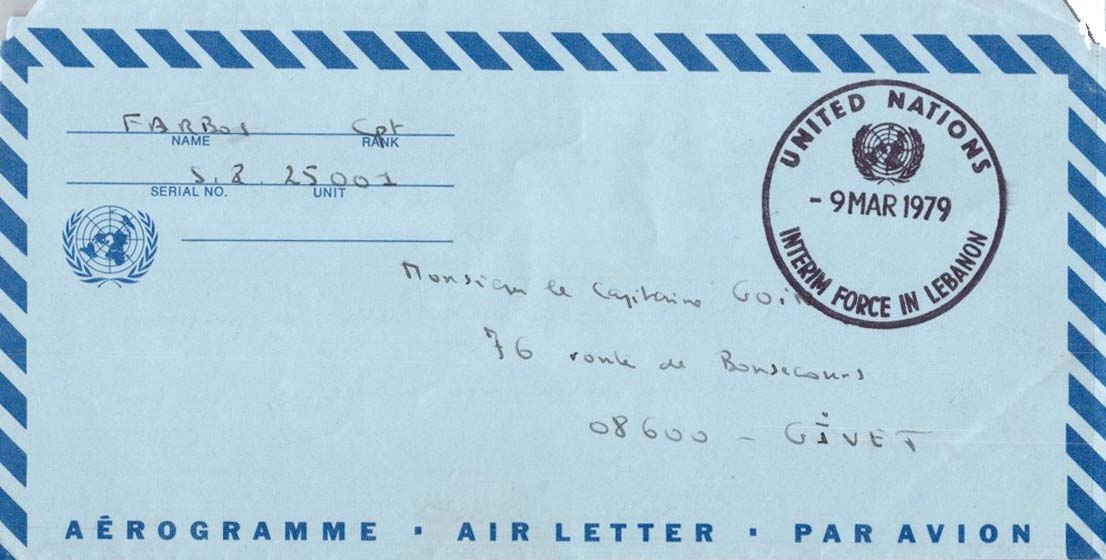 FARBOS Cpt
NAME RANK
S.P. 25001
SERIAL NO. UNIT
UNITED NATIONS
- 9 MAR 1979
INTERIM FORCE IN LEBANON
Monsieur le Capitaine
76 route de Bonsecours
08600 - GIVET
AÉROGRAMME · AIR LETTER · PAR AVION